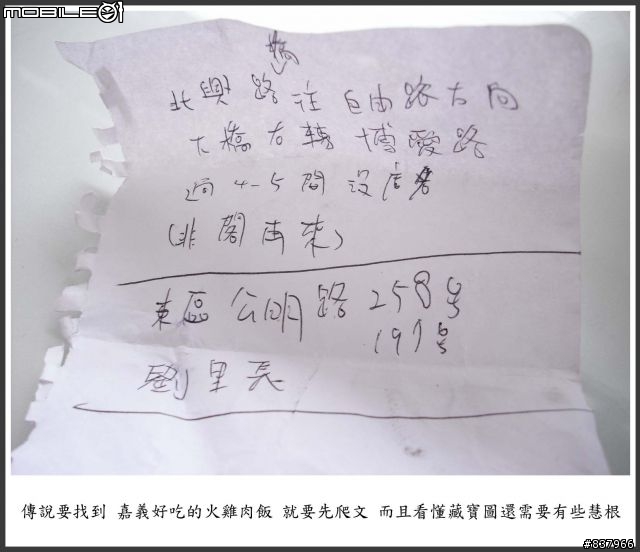 MOBILE01
橋
北興路往自由路方向
下橋右轉博愛路
過4-5間沒店名
(非閣再來)
東區公明路258号
197号
劉里長
傳說要找到 嘉義好吃的火雞肉飯 就要先爬文 而且看懂藏寶圖還需要有些慧根
#837966